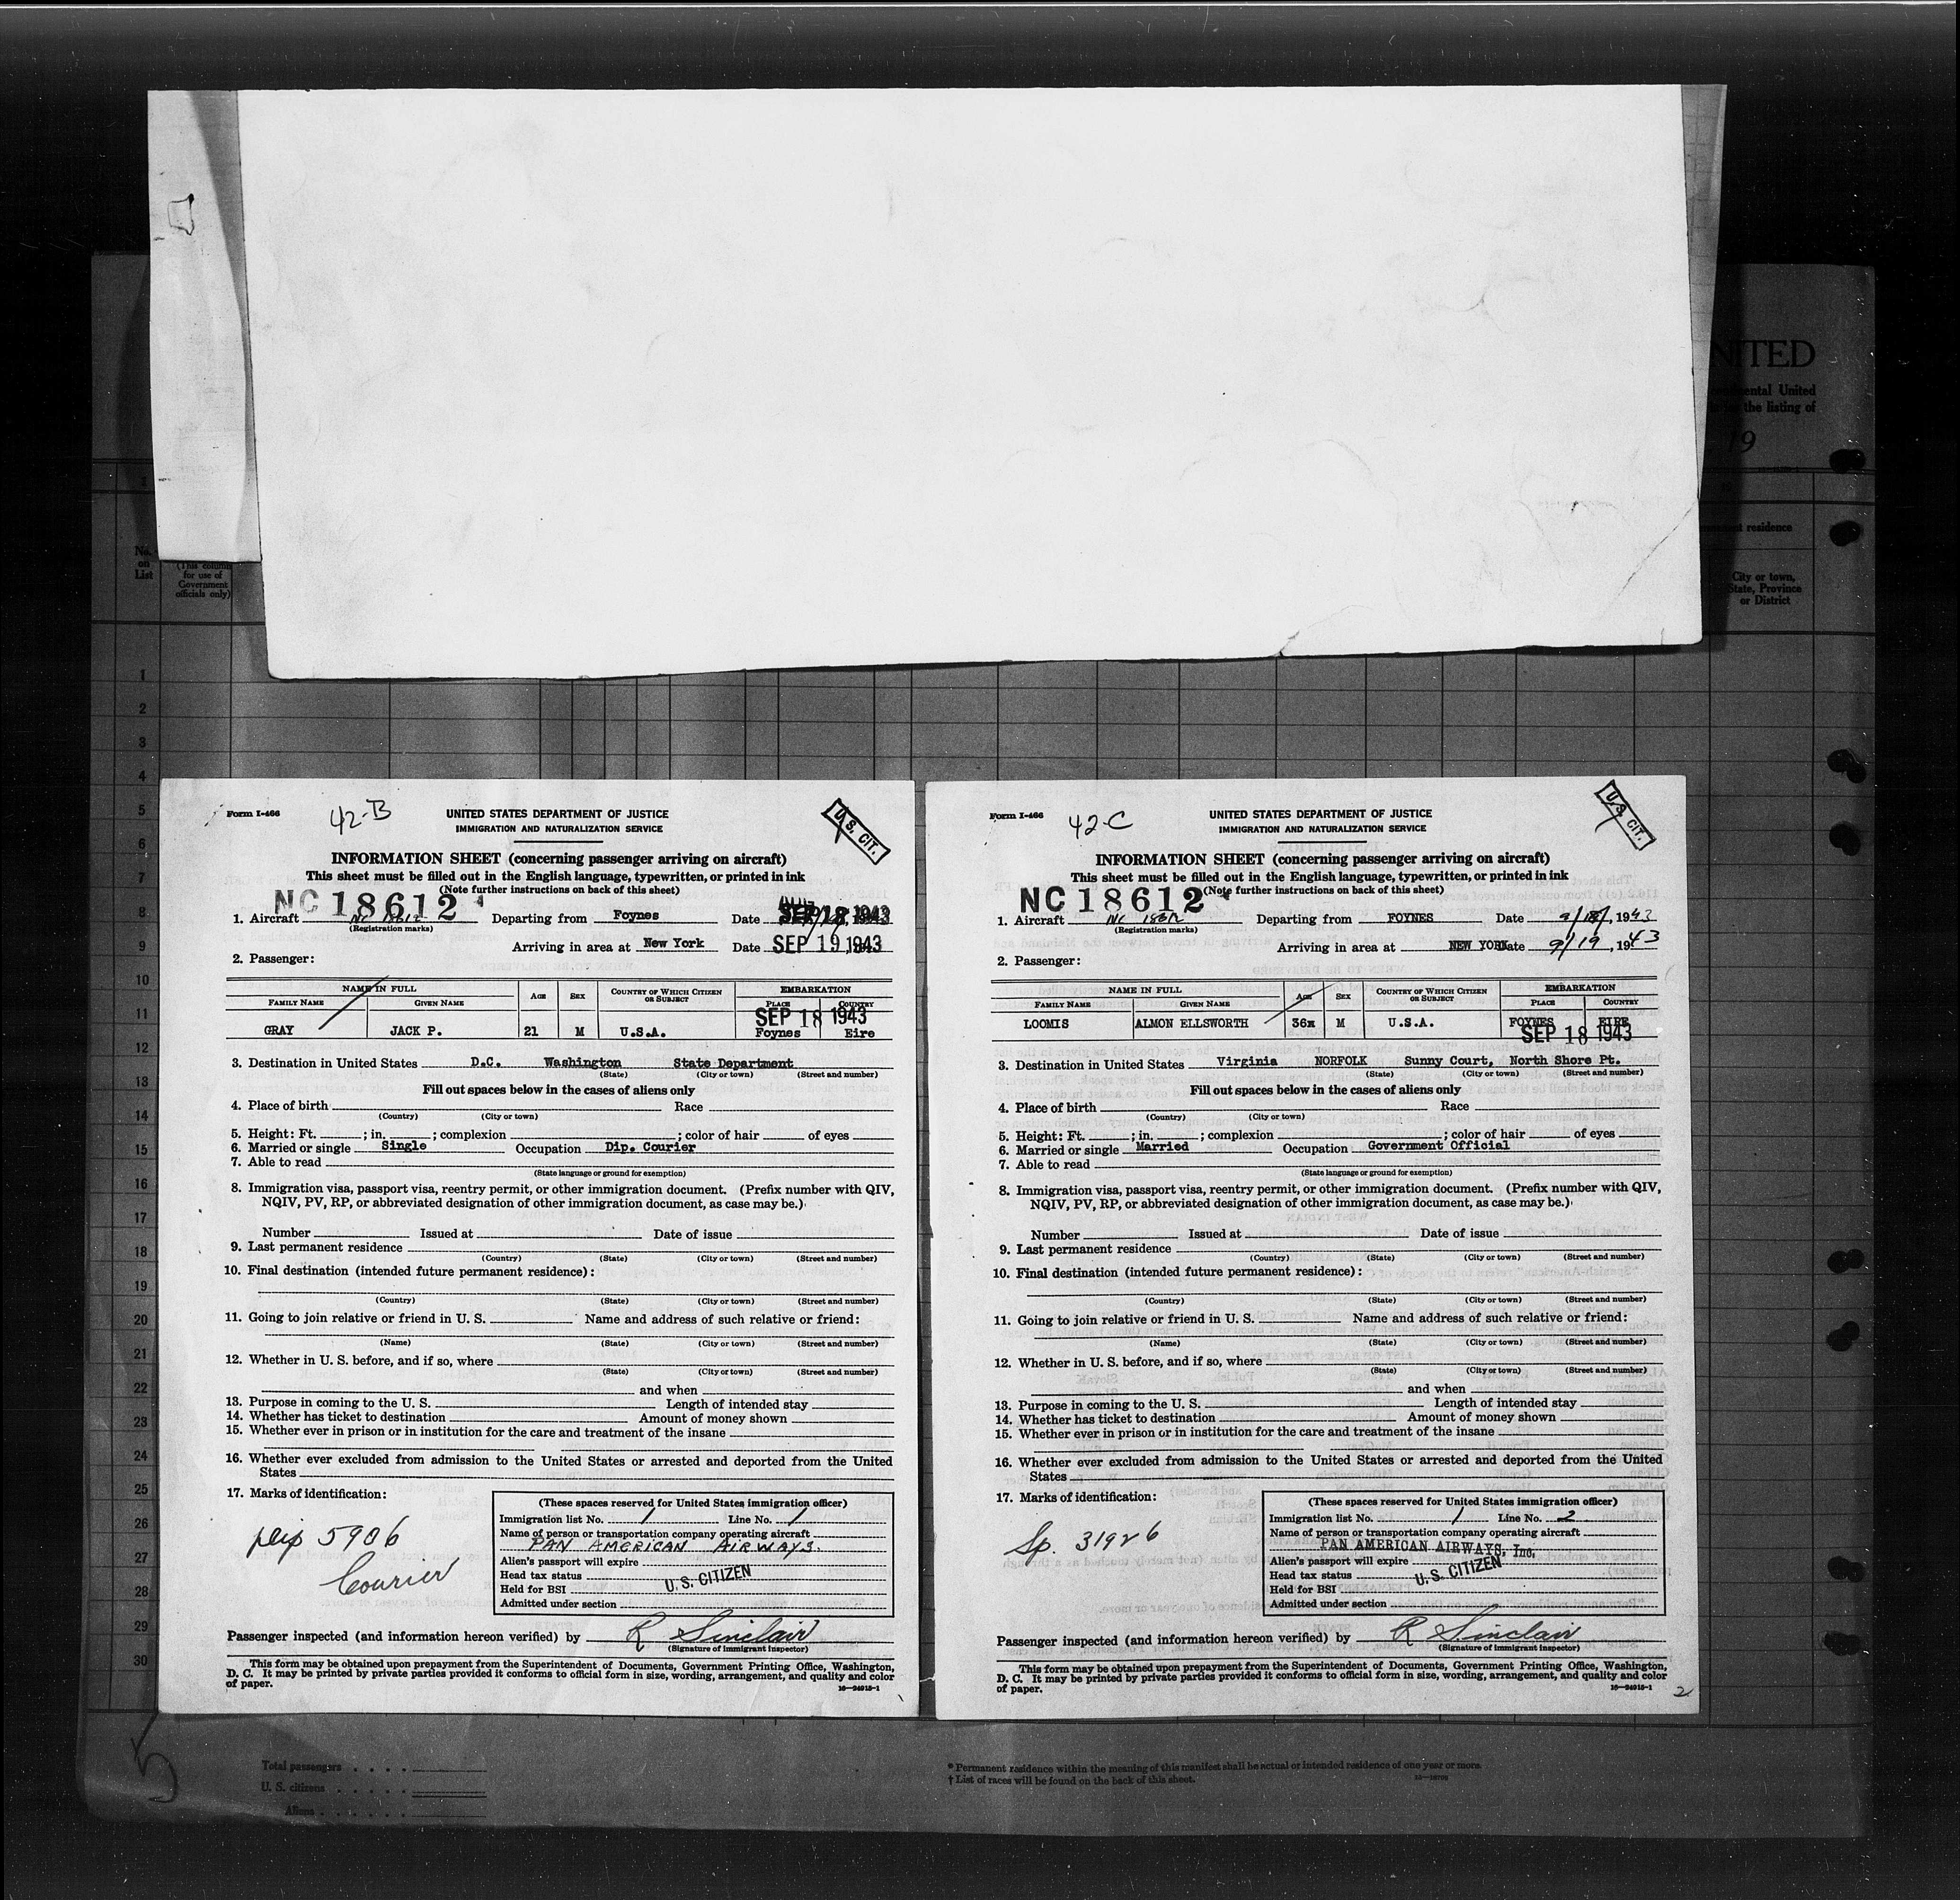 NITED
ental United
the listing of
19
residence
No.
on
List
(This column
for use of
Government
officials only)
City or town,
State, Province
or District
1
2
3
4
5
6
7
8
9
10
11
12
13
14
15
16
17
18
19
20
21
22
23
24
25
26
27
28
29
30
Form I-466
42-B
UNITED STATES DEPARTMENT OF JUSTICE
U.S. CIT.
IMMIGRATION AND NATURALIZATION SERVICE
INFORMATION SHEET (concerning passenger arriving on aircraft)
This sheet must be filled out in the English language, typewritten, or printed in ink
(Note further instructions on back of this sheet)
NC 18612
1. Aircraft Departing from Foynes Date SEP 18 1943
(Registration marks)
Arriving in area at New York Date SEP 19 1943
2. Passenger:
NAME IN FULL AGE SEX COUNTRY OF WHICH CITIZEN OR SUBJECT EMBARKATION
FAMILY NAME GIVEN NAME PLACE COUNTRY
SEP 18 1943
GRAY JACK P. 21 M U.S.A. Foynes Eire
3. Destination in United States D.C. Washington State Department
(State) (City or town) (Street and number)
Fill out spaces below in the cases of aliens only
4. Place of birth Race
(Country) (City or town)
5. Height: Ft. ; in. ; complexion ; color of hair of eyes
6. Married or single Single Occupation Dip. Courier
7. Able to read
(State language or ground for exemption)
8. Immigration visa, passport visa, reentry permit, or other immigration document. (Prefix number with QIV,
NQIV, PV, RP, or abbreviated designation of other immigration document, as case may be.)
Number Issued at Date of issue
9. Last permanent residence
(Country) (State) (City or town) (Street and number)
10. Final destination (intended future permanent residence):
(Country) (State) (City or town) (Street and number)
11. Going to join relative or friend in U. S. Name and address of such relative or friend:
(Name) (State) (City or town) (Street and number)
12. Whether in U. S. before, and if so, where
(State) (City or town) (Street and number)
and when
13. Purpose in coming to the U. S. Length of intended stay
14. Whether has ticket to destination Amount of money shown
15. Whether ever in prison or in institution for the care and treatment of the insane
16. Whether ever excluded from admission to the United States or arrested and deported from the United
States
17. Marks of identification:
5906
Courier
(These spaces reserved for United States immigration officer)
Immigration list No. 1 Line No. 1
Name of person or transportation company operating aircraft
PAN AMERICAN AIRWAYS.
Alien's passport will expire
Head tax status U.S. CITIZEN
Held for BSI
Admitted under section
Passenger inspected (and information hereon verified) by R Sinclair
(Signature of immigrant inspector)
This form may be obtained upon prepayment from the Superintendent of Documents, Government Printing Office, Washington,
D. C. It may be printed by private parties provided it conforms to official form in size, wording, arrangement, and quality and color
of paper.
16—24915-1
Form I-466
42-C
UNITED STATES DEPARTMENT OF JUSTICE
U.S. CIT.
IMMIGRATION AND NATURALIZATION SERVICE
INFORMATION SHEET (concerning passenger arriving on aircraft)
This sheet must be filled out in the English language, typewritten, or printed in ink
(Note further instructions on back of this sheet)
NC 18612
1. Aircraft NC 18612 Departing from FOYNES Date 9/18/, 1943
(Registration marks)
Arriving in area at NEW YORK Date 9/19, 1943
2. Passenger:
NAME IN FULL AGE SEX COUNTRY OF WHICH CITIZEN OR SUBJECT EMBARKATION
FAMILY NAME GIVEN NAME PLACE COUNTRY
LOOMIS ALMON ELLSWORTH 36 M U.S.A. FOYNES EIRE
SEP 18 1943
3. Destination in United States Virginia NORFOLK Sunny Court, North Shore Pt.
(State) (City or town) (Street and number)
Fill out spaces below in the cases of aliens only
4. Place of birth Race
(Country) (City or town)
5. Height: Ft. ; in. ; complexion ; color of hair of eyes
6. Married or single Married Occupation Government Official
7. Able to read
(State language or ground for exemption)
8. Immigration visa, passport visa, reentry permit, or other immigration document. (Prefix number with QIV,
NQIV, PV, RP, or abbreviated designation of other immigration document, as case may be.)
Number Issued at Date of issue
9. Last permanent residence
(Country) (State) (City or town) (Street and number)
10. Final destination (intended future permanent residence):
(Country) (State) (City or town) (Street and number)
11. Going to join relative or friend in U. S. Name and address of such relative or friend:
(Name) (State) (City or town) (Street and number)
12. Whether in U. S. before, and if so, where
(State) (City or town) (Street and number)
and when
13. Purpose in coming to the U. S. Length of intended stay
14. Whether has ticket to destination Amount of money shown
15. Whether ever in prison or in institution for the care and treatment of the insane
16. Whether ever excluded from admission to the United States or arrested and deported from the United
States
17. Marks of identification:
Sp. 31926
(These spaces reserved for United States immigration officer)
Immigration list No. 1 Line No. 2
Name of person or transportation company operating aircraft
PAN AMERICAN AIRWAYS, Inc.
Alien's passport will expire
Head tax status U.S. CITIZEN
Held for BSI
Admitted under section
Passenger inspected (and information hereon verified) by R Sinclair
(Signature of immigrant inspector)
This form may be obtained upon prepayment from the Superintendent of Documents, Government Printing Office, Washington,
D. C. It may be printed by private parties provided it conforms to official form in size, wording, arrangement, and quality and color
of paper.
16—24915-1
2
5
Total passengers
U. S. citizens
Aliens
* Permanent residence within the meaning of this manifest shall be actual or intended residence of one year or more.
† List of races will be found on the back of this sheet.